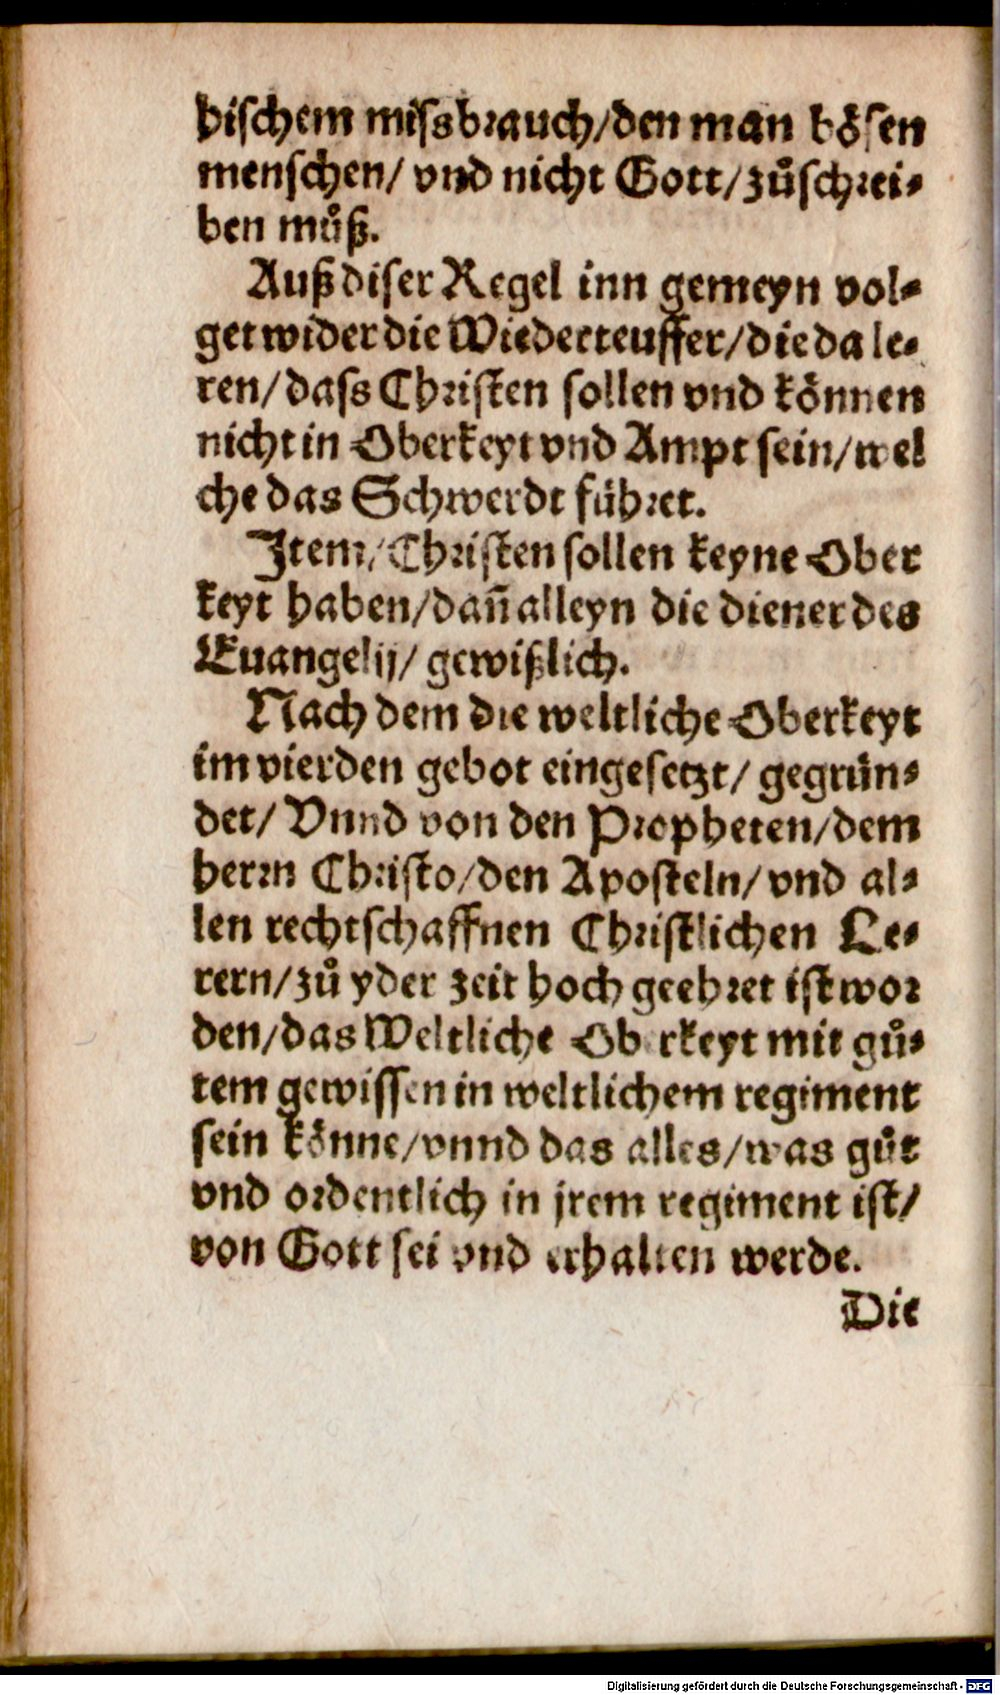 bischem missbrauch/den man bösen
menschen/ vnd nicht Gott/zůschrei⸗
ben můß.
Auß diser Regel inn gemeyn vol⸗
get wider die Wiederteuffer/die da le⸗
ren/dass Christen sollen vnd können
nicht in Oberkeyt vnd Ampt sein/wel
che das Schwerdt führet.
Item/Christen sollen keyne Ober
keyt haben/dañ alleyn die diener des
Euangelij/ gewißlich.
Nach dem die weltliche Oberkeyt
im vierden gebot eingesetzt/ gegrün⸗
det/ Vnnd von den Propheten/dem
herrn Christo/den Aposteln/vnd al⸗
len rechtschaffnen Christlichen Le⸗
rern/zů yder zeit hoch geehret ist wor
den/das Weltliche Oberkeyt mit gů⸗
tem gewissen in weltlichem regiment
sein könne/vnnd das alles/was gůt
vnd ordentlich in jrem regiment ist/
von Gott sei vnd erhalten werde.
Die
Digitalisierung gefördert durch die Deutsche Forschungsgemeinschaft - DFG